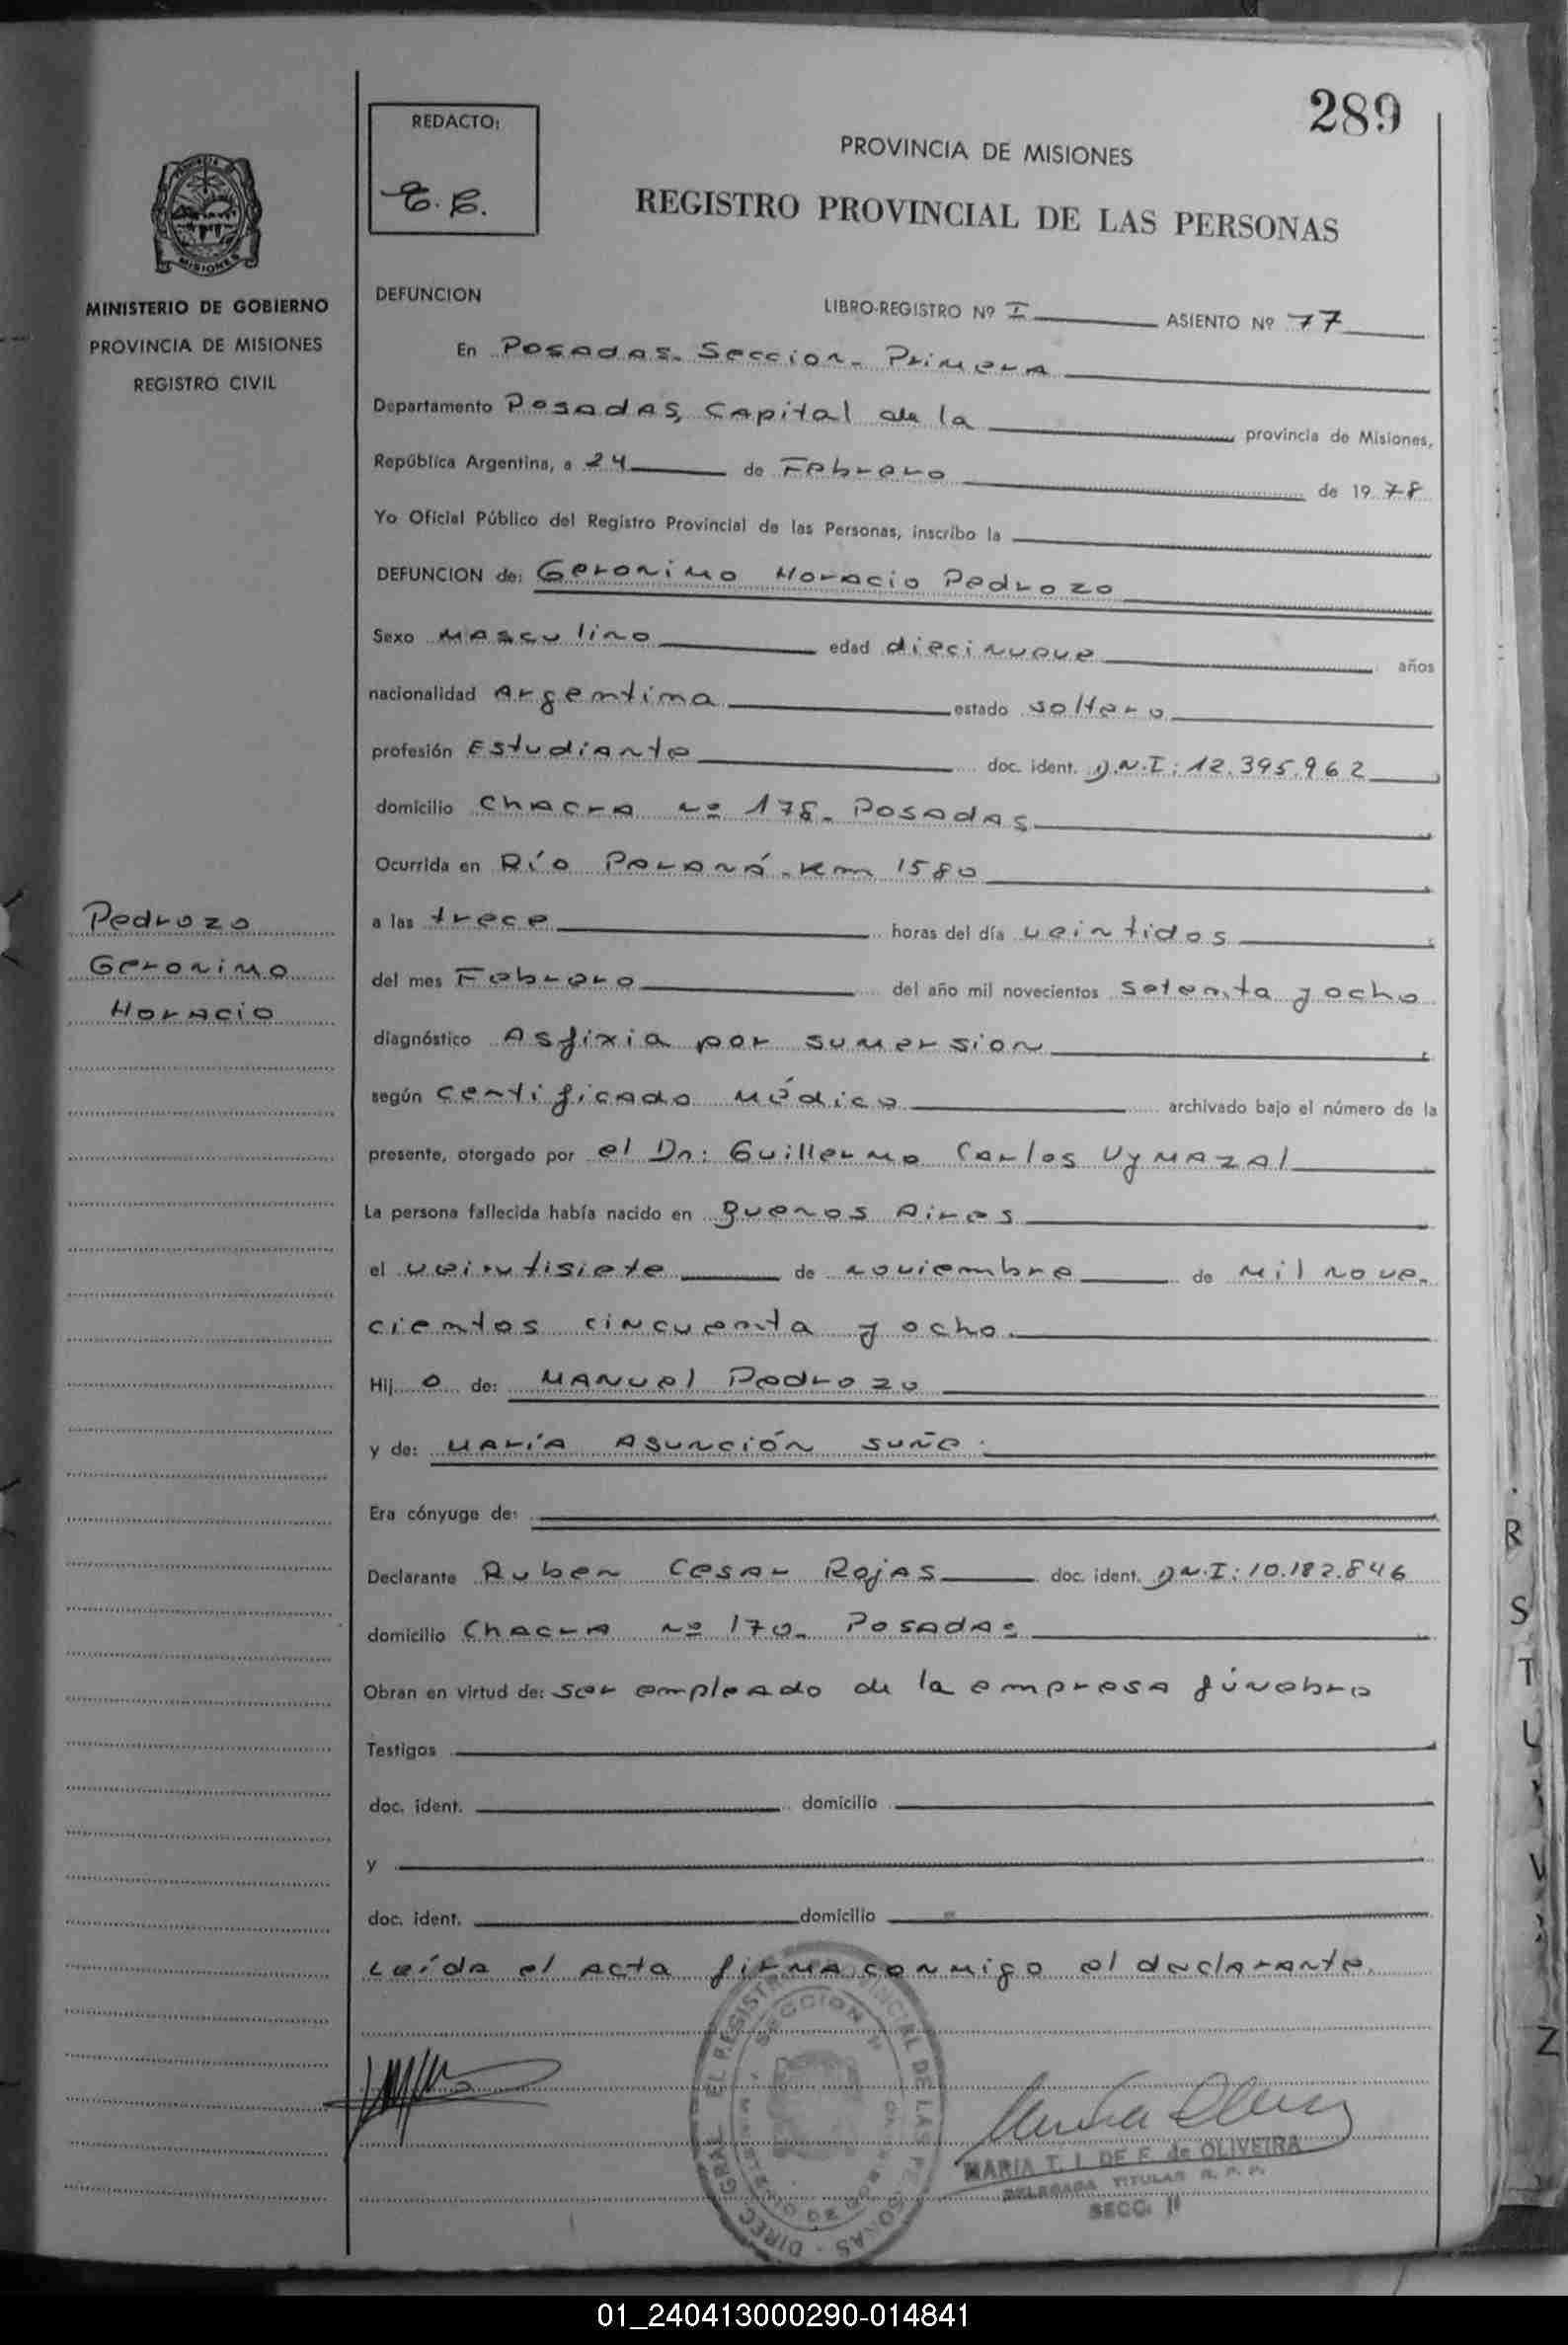 289
REDACTO:
PROVINCIA DE MISIONES
REGISTRO PROVINCIAL DE LAS PERSONAS
MISIONES
MINISTERIO DE GOBIERNO
PROVINCIA DE MISIONES
REGISTRO CIVIL
DEFUNCION
LIBRO-REGISTRO Nº I ASIENTO Nº 77
En Posadas. Seccion. Primera
Departamento Posadas, Capital de la provincia de Misiones,
República Argentina, a 24 de Febrero de 1978
Yo Oficial Público del Registro Provincial de las Personas, inscribo la
DEFUNCION de: Geronimo Horacio Pedrozo
Sexo Masculino edad diecinueve años
nacionalidad Argentina estado soltero
profesión Estudiante doc. ident. D.N.I: 12.395.962
domicilio Chacra nº 178. Posadas
Ocurrida en Río Paraná. Km 1580
Pedrozo
Geronimo
Horacio
a las trece horas del día veintidos
del mes Febrero del año mil novecientos setenta y ocho
diagnóstico Asfixia por sumersion
según Certificado Médico archivado bajo el número de la
presente, otorgado por el Dr: Guillermo Carlos Vymazal
La persona fallecida había nacido en Buenos Aires
el veintisiete de noviembre de mil nove.
cientos cincuenta y ocho.
Hij o de: Manuel Pedrozo
y de: María Asunción Suñe.
Era cónyuge de:
Declarante Ruben Cesar Rojas doc. ident. D.N.I: 10.182.846
domicilio Chacra nº 170. Posadas
Obran en virtud de: ser empleado de la empresa fúnebre
Testigos
doc. ident. domicilio
y
doc. ident. domicilio
Leída el acta firma conmigo el declarante.
SECCION
MARIA T. I. DE F. de OLIVEIRA
DELEGADA TITULAR R. P. P.
SECC. II
R
S
T
U
V
Z
01_240413000290-014841